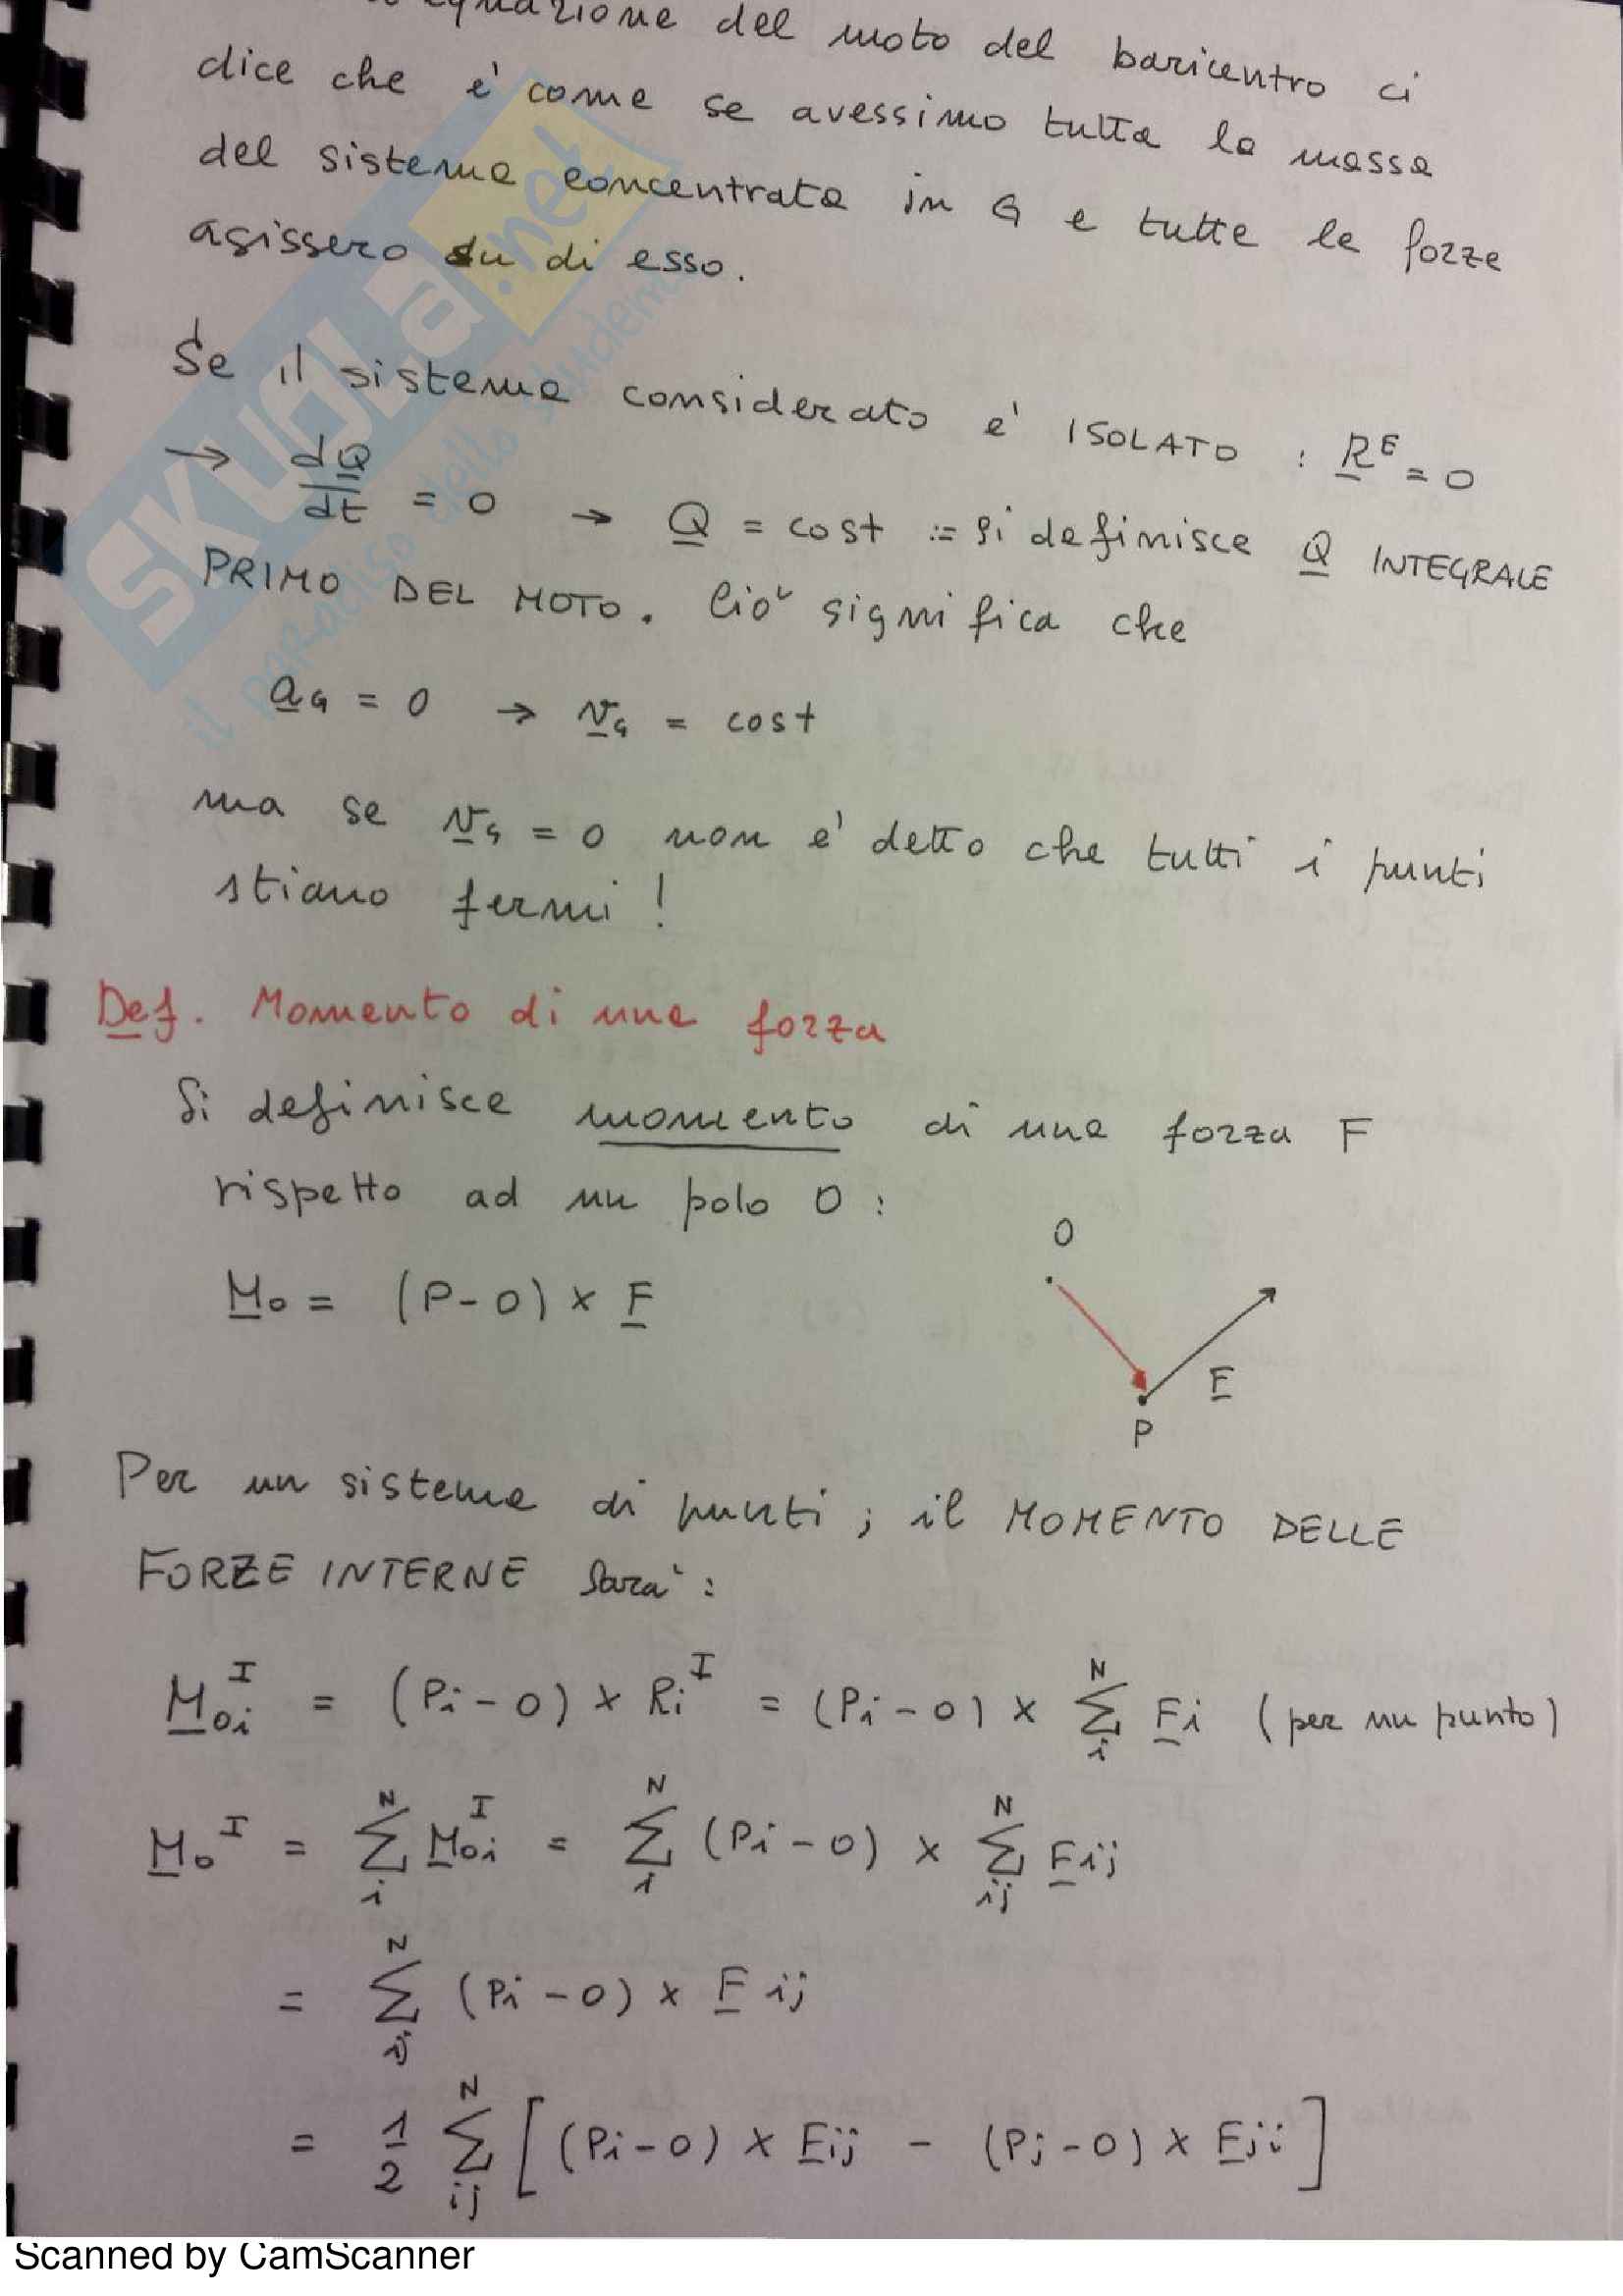 equazione del moto del baricentro ci
dice che e' come se avessimo tutta la massa
del sistema concentrata in G e tutte le forze
agissero su di esso.
Se il sistema considerato e' ISOLATO : R^E = 0
→ dQ/dt = 0 → Q = cost := Si definisce Q INTEGRALE
PRIMO DEL MOTO. Cio' significa che
a_G = 0 → v_G = cost
ma se v_G = 0 non e' detto che tutti i punti
stiano fermi !
Def. Momento di una forza
Si definisce momento di una forza F
rispetto ad un polo O :
M_O = (P-O) × F
O
F
P
Per un sistema di punti ; il MOMENTO DELLE
FORZE INTERNE sara' :
M_Oi^I = (Pi - O) × Ri^I = (Pi - O) × Σ_i^N Fi (per un punto)
M_O^I = Σ_i^N M_Oi^I = Σ_i^N (Pi - O) × Σ_ij^N Fij
= Σ_ij^N (Pi - O) × Fij
= 1/2 Σ_ij^N [(Pi - O) × Fij - (Pj - O) × Fji]
SKUOLA.net
il paradiso dello studente
Scanned by CamScanner